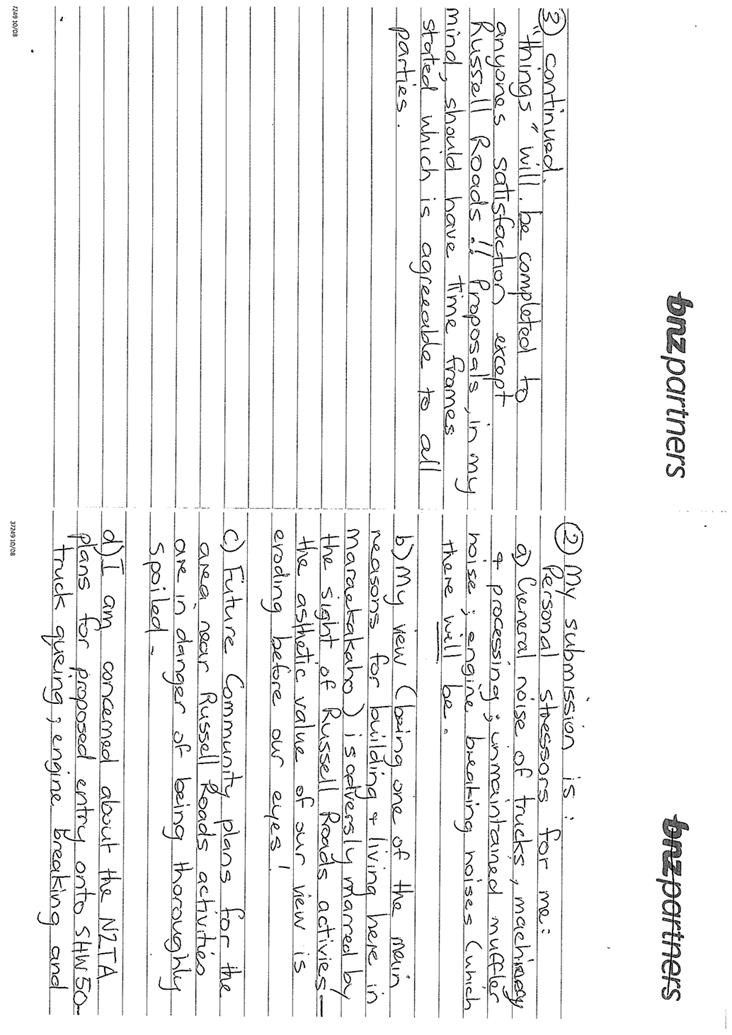 bnzpartners
③ continued.
"things" will be completed to
anyones satisfaction except
Russell Roads!! Proposals, in my
mind, should have time frames
stated which is agreeable to all
parties.
7249 10/08
bnzpartners
② My submission is:
Personal stressors for me:
a) General noise of trucks, machinery
+ processing; unmaintained muffler
noise; engine breaking noises (which
there will be.
b) My view (being one of the main
reasons for building + living here in
Maraekakaho) is adversly marred by
the sight of Russell Roads activies -
the asthetic value of our view is
eroding before our eyes!
c) Future Community plans for the
area near Russell Roads activities
are in danger of being thoroughly
spoiled -
d) I am concerned about the NZTA
plans for proposed entry onto SHW50 -
truck queing; engine breaking and
37249 10/08